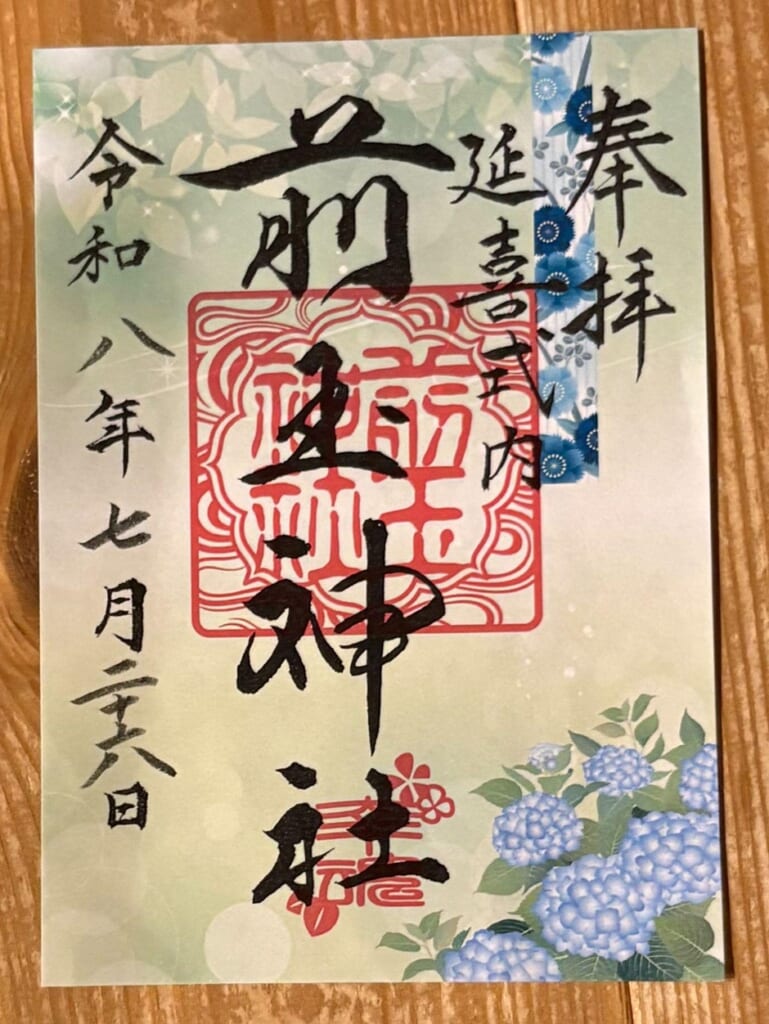 奉拝
延喜式内
前玉神社
前玉
神社
令和八年七月二十六日